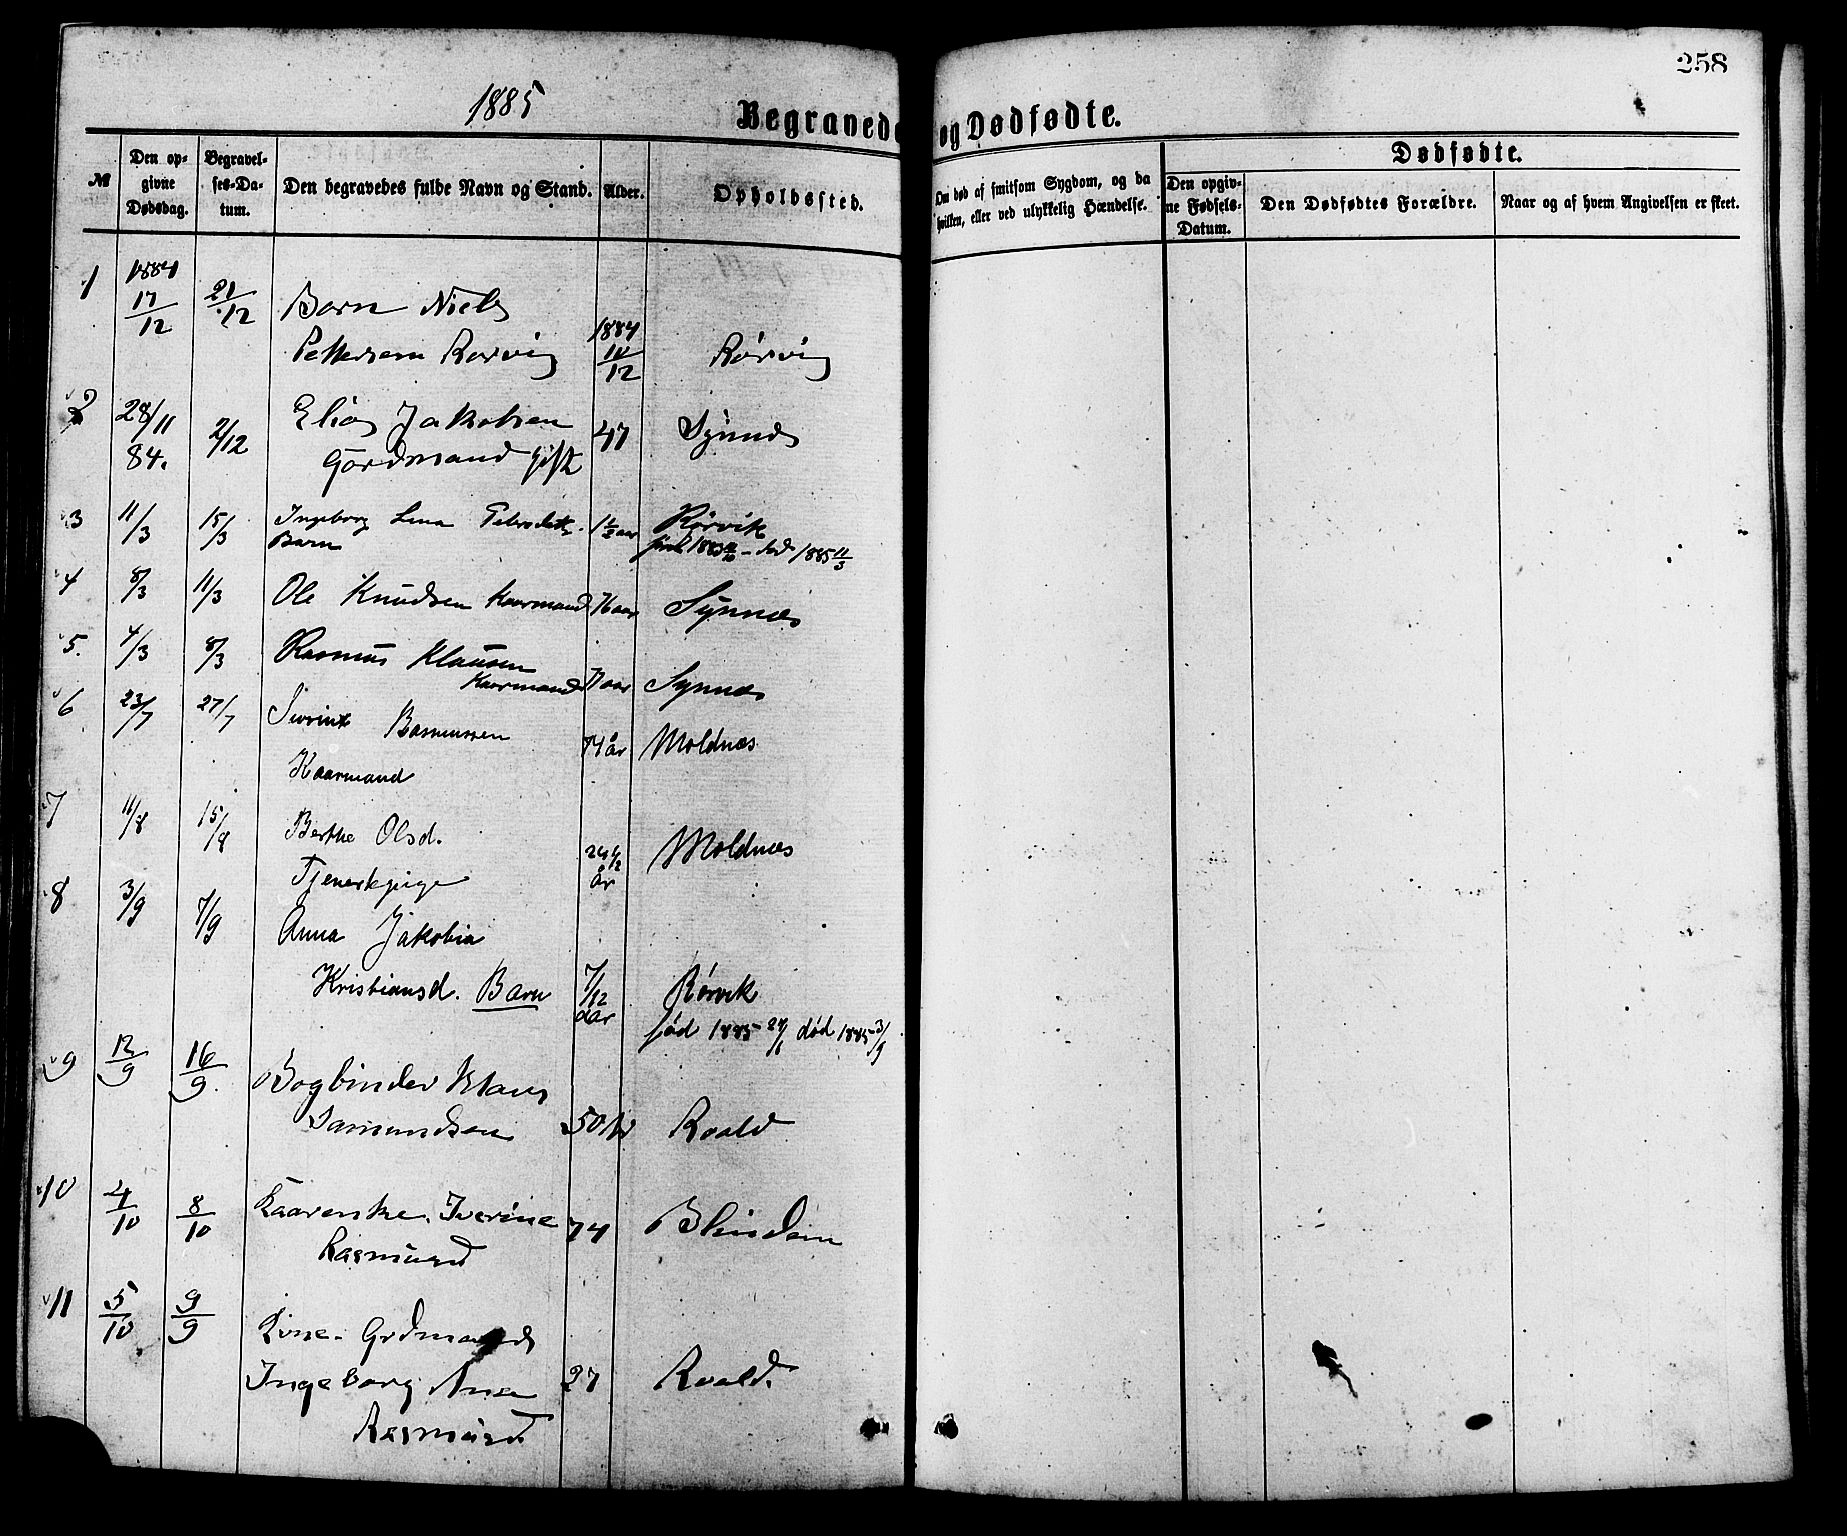 258
1885
Begravede og Dødfødte.
Dødfødte.
№
Den op-
givne
Dødsdag.
Begravel-
ses-Da-
tum.
Den begravedes fulde Navn og Stand.
Alder.
Opholdssted.
Om død af smitsom Sygdom, og da
hvilken, eller ved ulykkelig Hændelse.
Den opgiv-
ne Fødsels-
Datum.
Den Dødfødtes Forældre.
Naar og af hvem Angivelsen er skeet.
1 1884 17/12 21/12 Barn Niels
Pettersen Rørvig 1884 10/12 Rørvig
2 28/11 84. 2/12 Elias Jakobsen
Gardmand gift 47 Synnes
3 11/3 15/3 Ingeborg Lina 1 1/2 aar Rørvik
Barn 1883 død 1885 11/3
4 8/3 11/3 Ole Knudsen Kaarmand 76 aar Synnes
5. 4/3 8/3 Rasmus Klausen
Kaarmand 71 aar Synnes
6 23/7 27/7 Rasmussen
Kaarmand 74 år Moldnæs
7 11/8 15/8 Berthe Olsd.
Tjenestepige 24 1/2 år Moldnæs
8 3/9 7/9 Anna Jakobia
Kristiansd. Barn 7/12 aar Rørvik
fød 1885 død 1885 3/9
9 12/9 16/9 Bogbinder Klaus
Samundsen 50 Roald
10 4/10 8/10 Iverine
Rasmusd 74 Blindem
11 5/10 9/9 Kone. Grdmands
Ingeborg Ana 27 Roald.
Rasmusd.